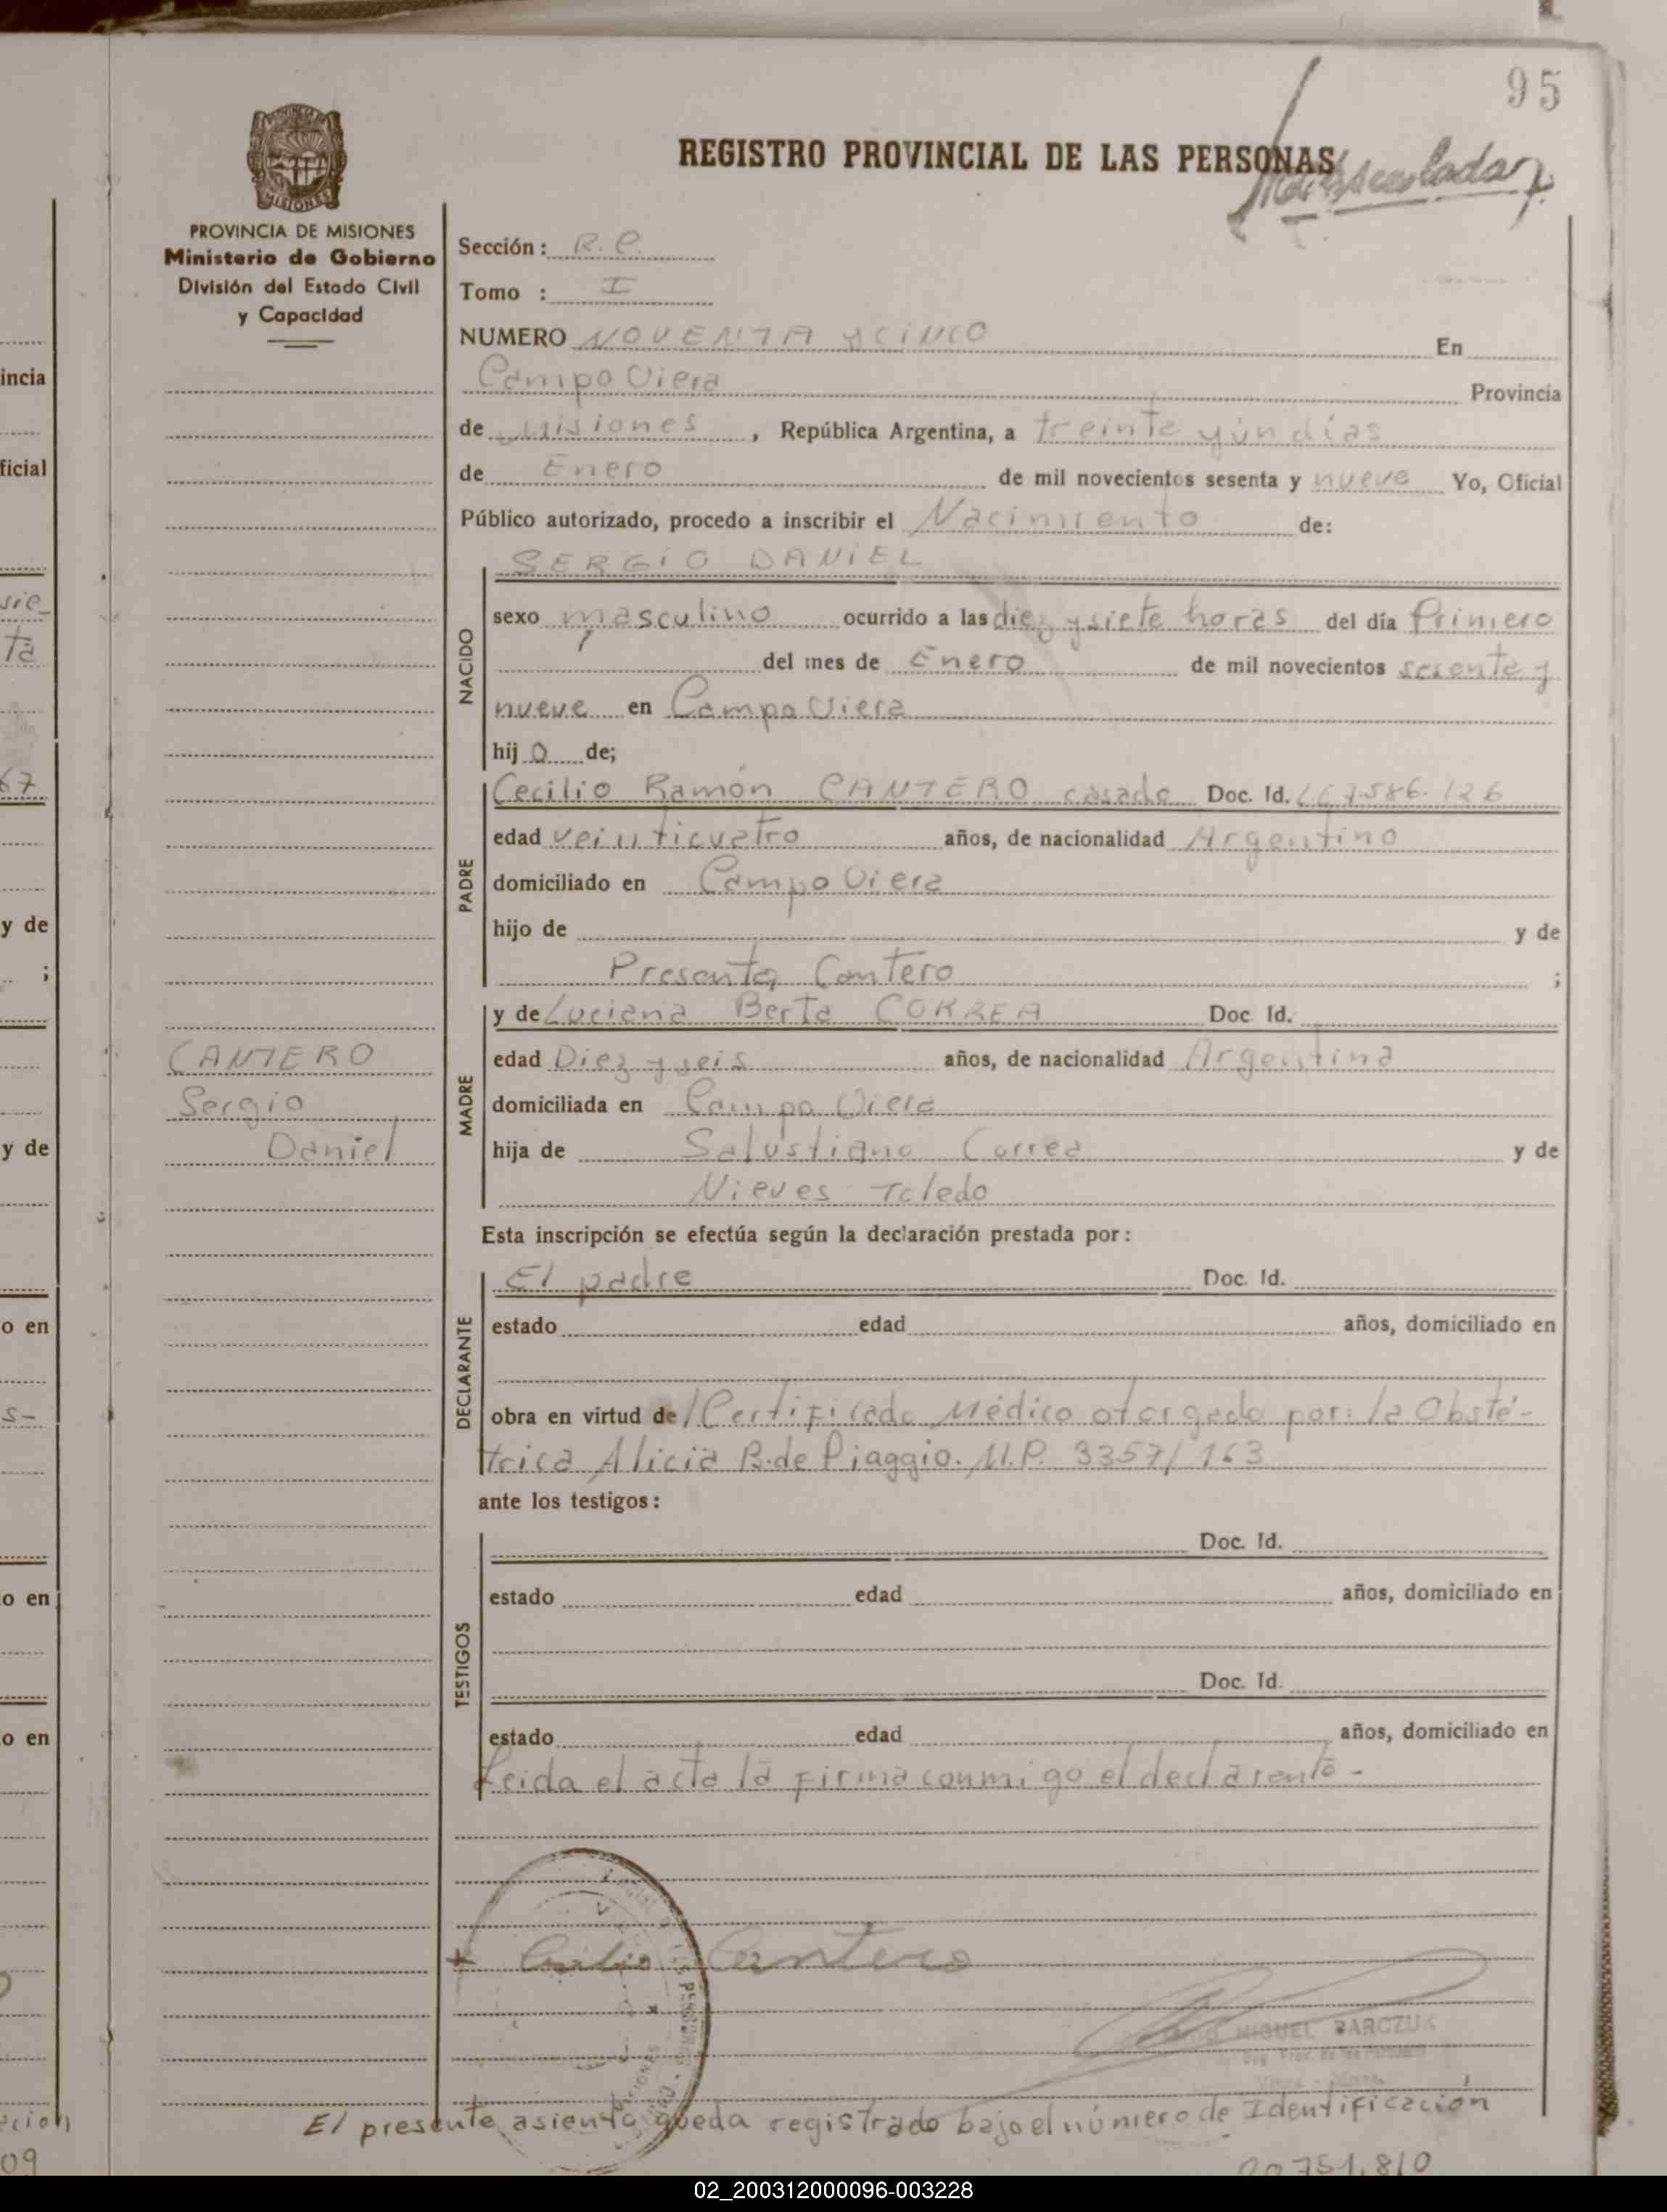 95
REGISTRO PROVINCIAL DE LAS PERSONAS
MISIONES
PROVINCIA DE MISIONES
Ministerio de Gobierno
División del Estado Civil
y Capacidad
Sección: R. P.
Tomo : I
NUMERO NOVENTA y CINCO En
Campo Viera Provincia
de Misiones, República Argentina, a treinta y ún días
de Enero de mil novecientos sesenta y nueve Yo, Oficial
Público autorizado, procedo a inscribir el Nacimiento de:
SERGIO DANIEL
NACIDO
sexo masculino ocurrido a las diez y siete horas del día Primero
del mes de Enero de mil novecientos sesenta y
nueve en Campo Viera
hijo de;
PADRE
Cecilio Ramón CANTERO casado Doc. Id. L.E 7.586.126
edad veinticuatro años, de nacionalidad Argentino
domiciliado en Campo Viera
hijo de y de
Presenta Cantero ;
MADRE
y de Luciana Berta CORREA Doc Id.
edad Diez y seis años, de nacionalidad Argentina
domiciliada en Campo Viera
hija de Salustiano Correa y de
Nieves Toledo
CANTERO
Sergio
Daniel
Esta inscripción se efectúa según la declaración prestada por:
DECLARANTE
El padre Doc. Id.
estado edad años, domiciliado en
obra en virtud del Certificado Médico otorgado por: la Obsté-
trica Alicia B. de Piaggio. M.P. 3357/163
ante los testigos:
TESTIGOS
Doc. Id.
estado edad años, domiciliado en
Doc. Id.
estado edad años, domiciliado en
Leida el acta la firma conmigo el declarante -
Cecilio Cantero
MIGUEL BARCZUK
El presente asiento queda registrado bajo el número de Identificación
20.751.810
incia
ficial
sie
ta
67
y de
;
y de
o en
s-
o en
o en
09
02_200312000096-003228